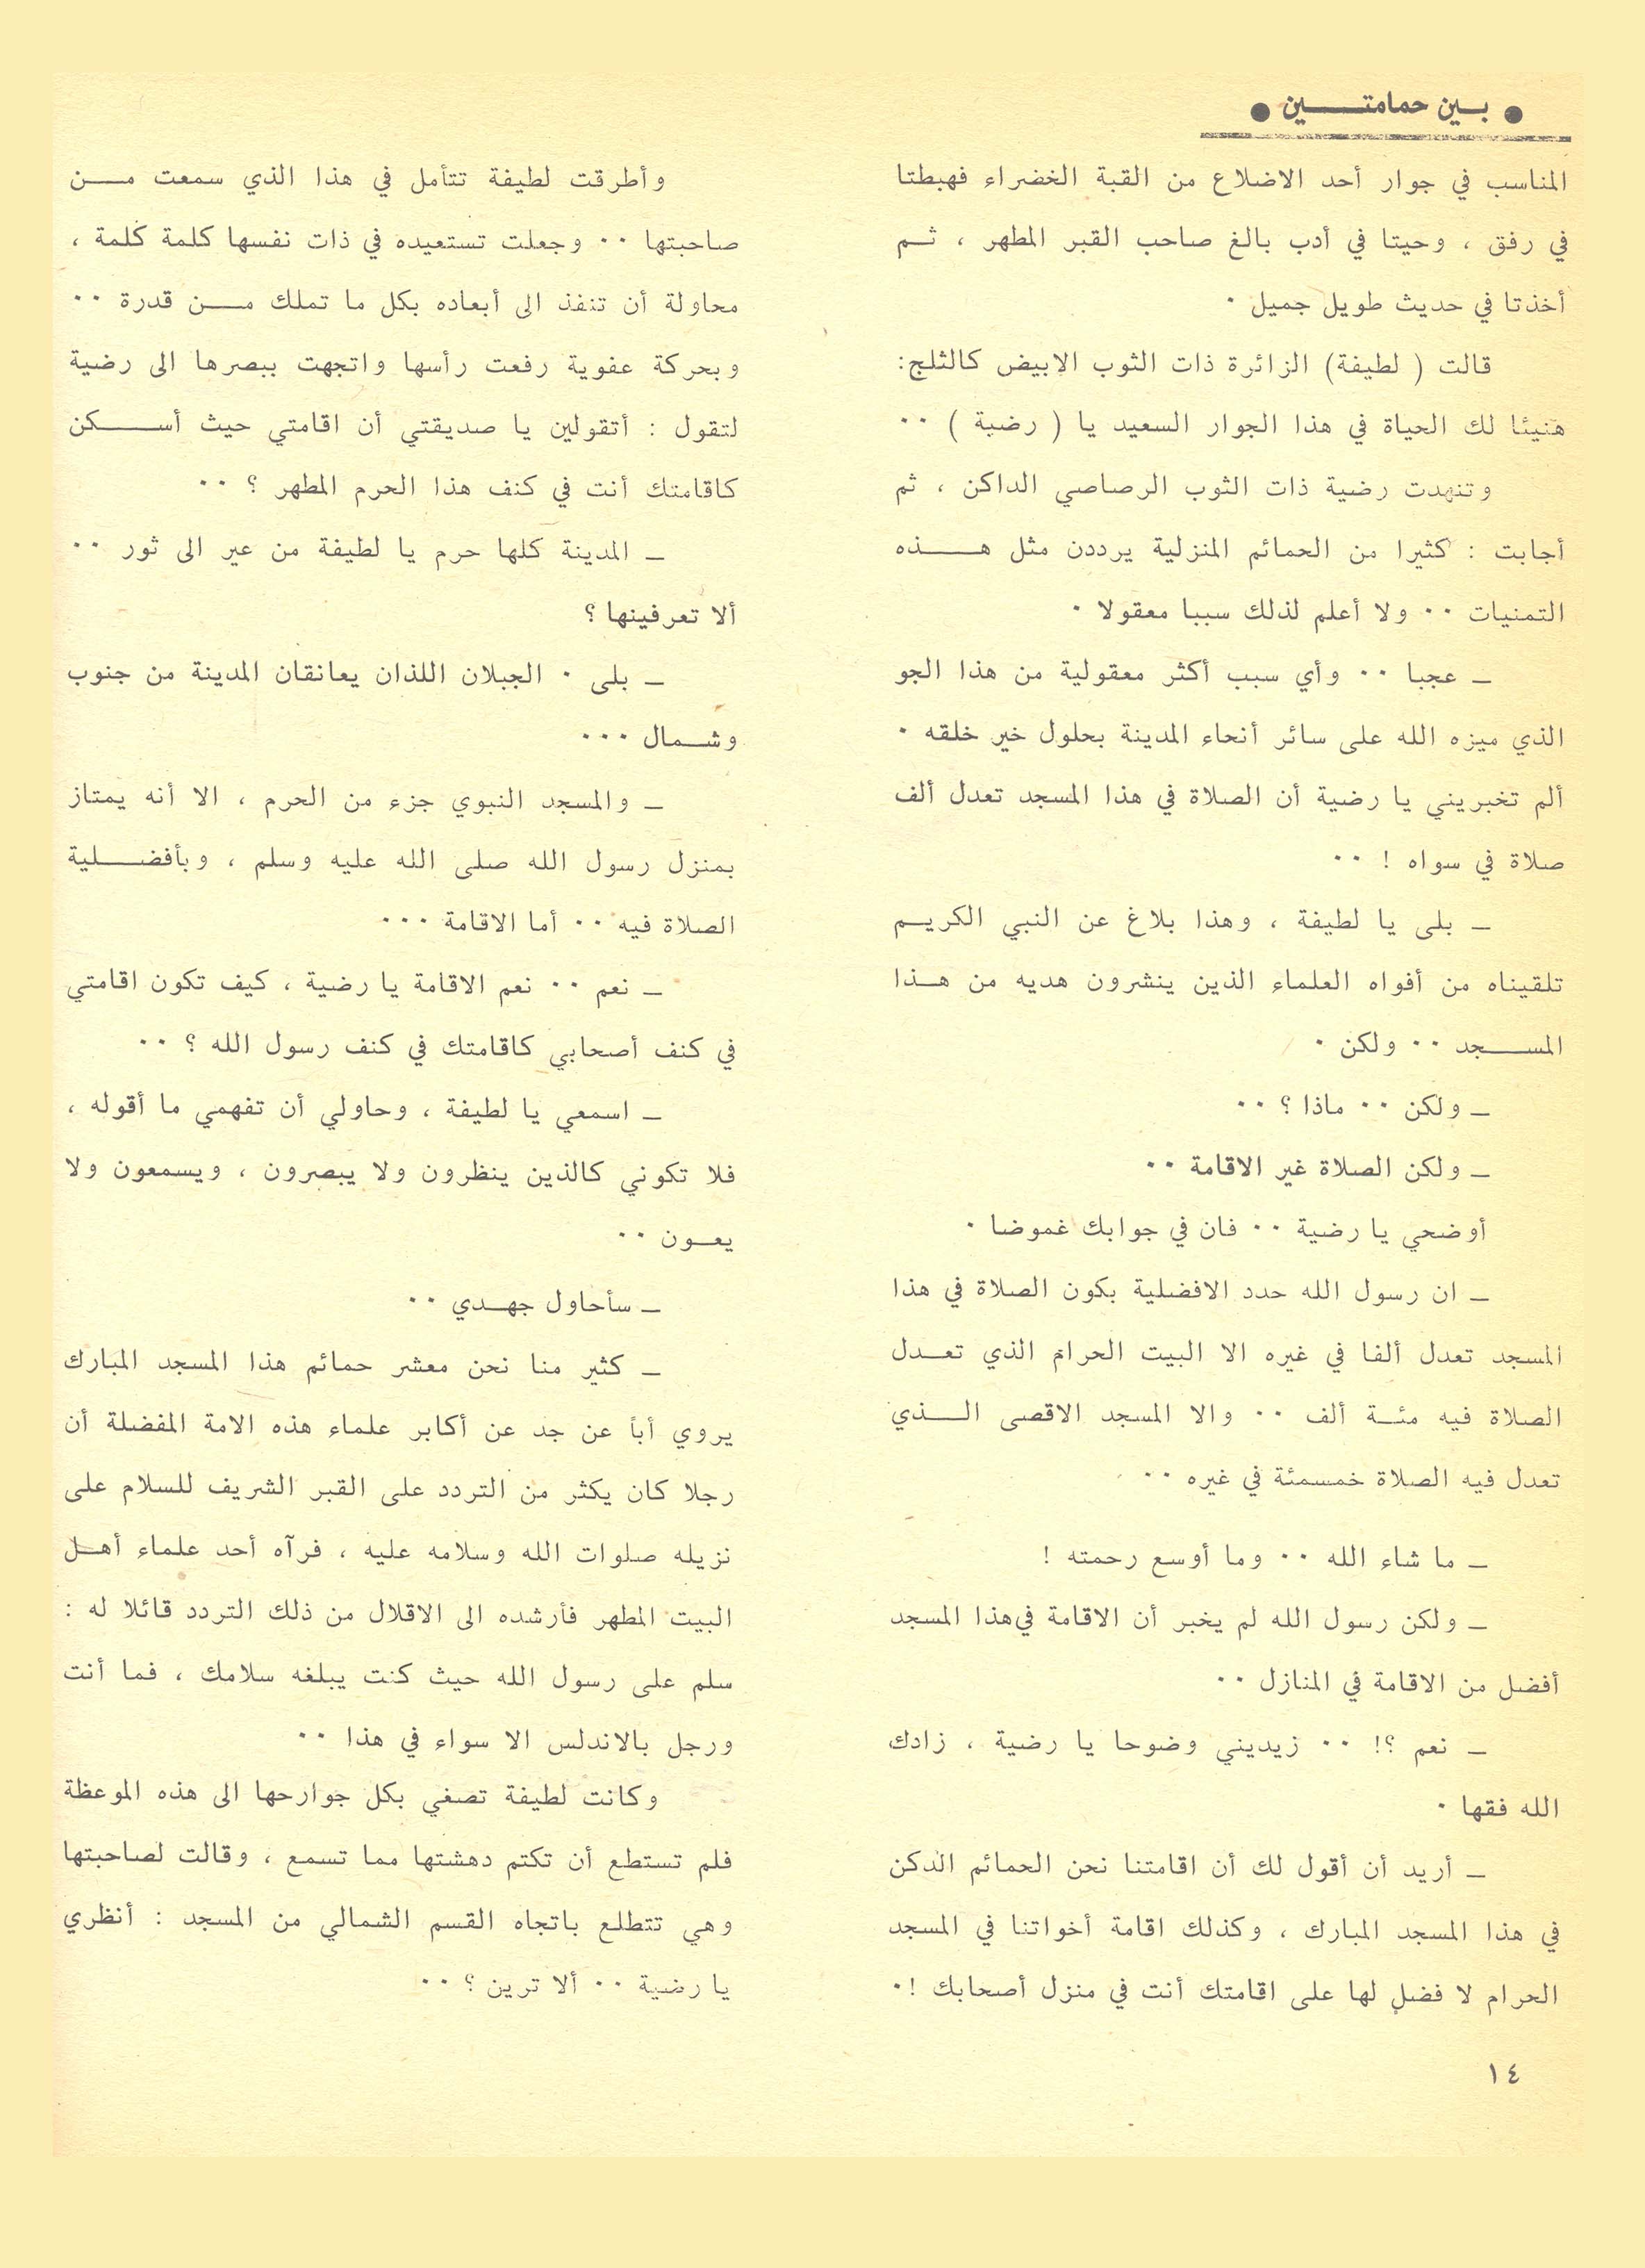 ● بــين حمامتــــين ●
المناسب في جوار أحد الاضلاع من القبة الخضراء فهبطتا
في رفق ، وحيتا في أدب بالغ صاحب القبر المطهر ، ثــم
أخذتا في حديث طويل جميل ٠
قالت ( لطيفة) الزائرة ذات الثوب الابيض كالثلج:
هنيئا لك الحياة في هذا الجوار السعيد يا ( رضية ) ٠٠
وتنهدت رضية ذات الثوب الرصاصي الداكن ، ثم
أجابت : كثيرا من الحمائم المنزلية يرددن مثل هــــذه
التمنيات ٠٠ ولا أعلم لذلك سببا معقولا ٠
ــ عجبا ٠٠ وأي سبب أكثر معقولية من هذا الجو
الذي ميزه الله على سائر أنحاء المدينة بحلول خير خلقه ٠
ألم تخبريني يا رضية أن الصلاة في هذا المسجد تعدل ألف
صلاة في سواه ! ٠٠
ــ بلى يا لطيفة ، وهذا بلاغ عن النبي الكريــم
تلقيناه من أفواه العلماء الذين ينشرون هديه من هــذا
المســـجد ٠٠ ولكن ٠
ــ ولكن ٠٠ ماذا ؟ ٠٠
ــ ولكن الصلاة غير الاقامة ٠٠
أوضحي يا رضية ٠٠ فان في جوابك غموضا ٠
ــ ان رسول الله حدد الافضلية بكون الصلاة في هذا
المسجد تعدل ألفا في غيره الا البيت الحرام الذي تعــدل
الصلاة فيه مئــة ألف ٠٠ والا المسجد الاقصى الـــذي
تعدل فيه الصلاة خمسمئة في غيره ٠٠
ــ ما شاء الله ٠٠ وما أوسع رحمته !
ــ ولكن رسول الله لم يخبر أن الاقامة في هذا المسجد
أفضل من الاقامة في المنازل ٠٠
ــ نعم ؟! ٠٠ زيديني وضوحا يا رضية ، زادك
الله فقها ٠
ــ أريد أن أقول لك أن اقامتنا نحن الحمائم الدكن
في هذا المسجد المبارك ، وكذلك اقامة أخواتنا في المسجد
الحرام لا فضل لها على اقامتك أنت في منزل أصحابك !٠
وأطرقت لطيفة تتأمل في هذا الذي سمعت مـــن
صاحبتها ٠٠ وجعلت تستعيده في ذات نفسها كلمة كلمة ،
محاولة أن تنفذ الى أبعاده بكل ما تملك مـــن قدرة ٠٠
وبحركة عفوية رفعت رأسها واتجهت ببصرها الى رضية
لتقول : أتقولين يا صديقتي أن اقامتي حيث أســـكن
كاقامتك أنت في كنف هذا الحرم المطهر ؟ ٠٠
ــ المدينة كلها حرم يا لطيفة من عير الى ثور ٠٠
ألا تعرفينها ؟
ــ بلى ٠ الجبلان اللذان يعانقان المدينة من جنوب
وشــمال ٠٠٠
ــ والمسجد النبوي جزء من الحرم ، الا أنه يمتاز
بمنزل رسول الله صلى الله عليه وسلم ، وبأفضـــلية
الصلاة فيه ٠٠ أما الاقامة ٠٠٠
ــ نعم ٠٠ نعم الاقامة يا رضية ، كيف تكون اقامتي
في كنف أصحابي كاقامتك في كنف رسول الله ؟ ٠٠
ــ اسمعي يا لطيفة ، وحاولي أن تفهمي ما أقوله ،
فلا تكوني كالذين ينظرون ولا يبصرون ، ويسمعون ولا
يعــون ٠٠
ــ سأحاول جهــدي ٠٠
ــ كثير منا نحن معشر حمائم هذا المسجد المبارك
يروي أباً عن جد عن أكابر علماء هذه الامة المفضلة أن
رجلا كان يكثر من التردد على القبر الشريف للسلام على
نزيله صلوات الله وسلامه عليه ، فرآه أحد علماء أهــل
البيت المطهر فأرشده الى الاقلال من ذلك التردد قائلا له :
سلم على رسول الله حيث كنت يبلغه سلامك ، فما أنت
ورجل بالاندلس الا سواء في هذا ٠٠
وكانت لطيفة تصغي بكل جوارحها الى هذه الموعظة
فلم تستطع أن تكتم دهشتها مما تسمع ، وقالت لصاحبتها
وهي تتطلع باتجاه القسم الشمالي من المسجد : أنظري
يا رضية ٠٠ ألا ترين ؟ ٠٠
١٤